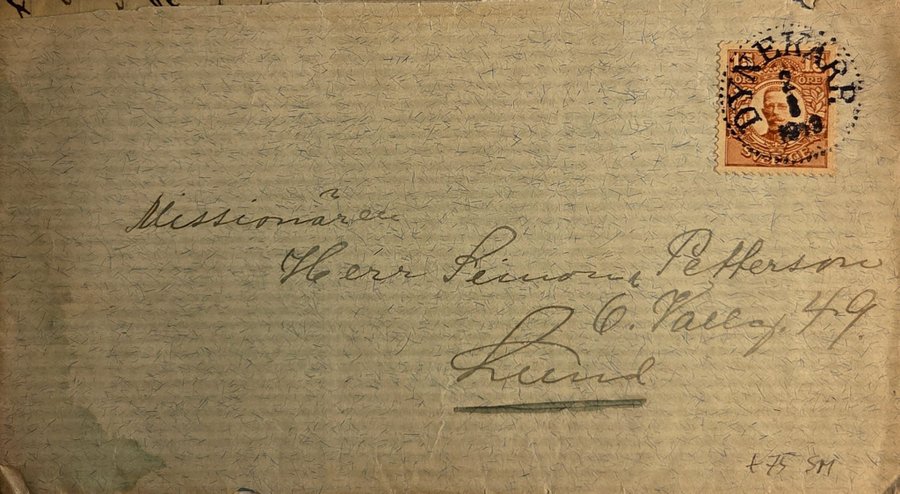 DYNEKARR
2
8
1913
ÖRE
SVERIGE
Missionären
Herr Seimon Petterson
Ö. Vallg. 49
Lund
+75 SM